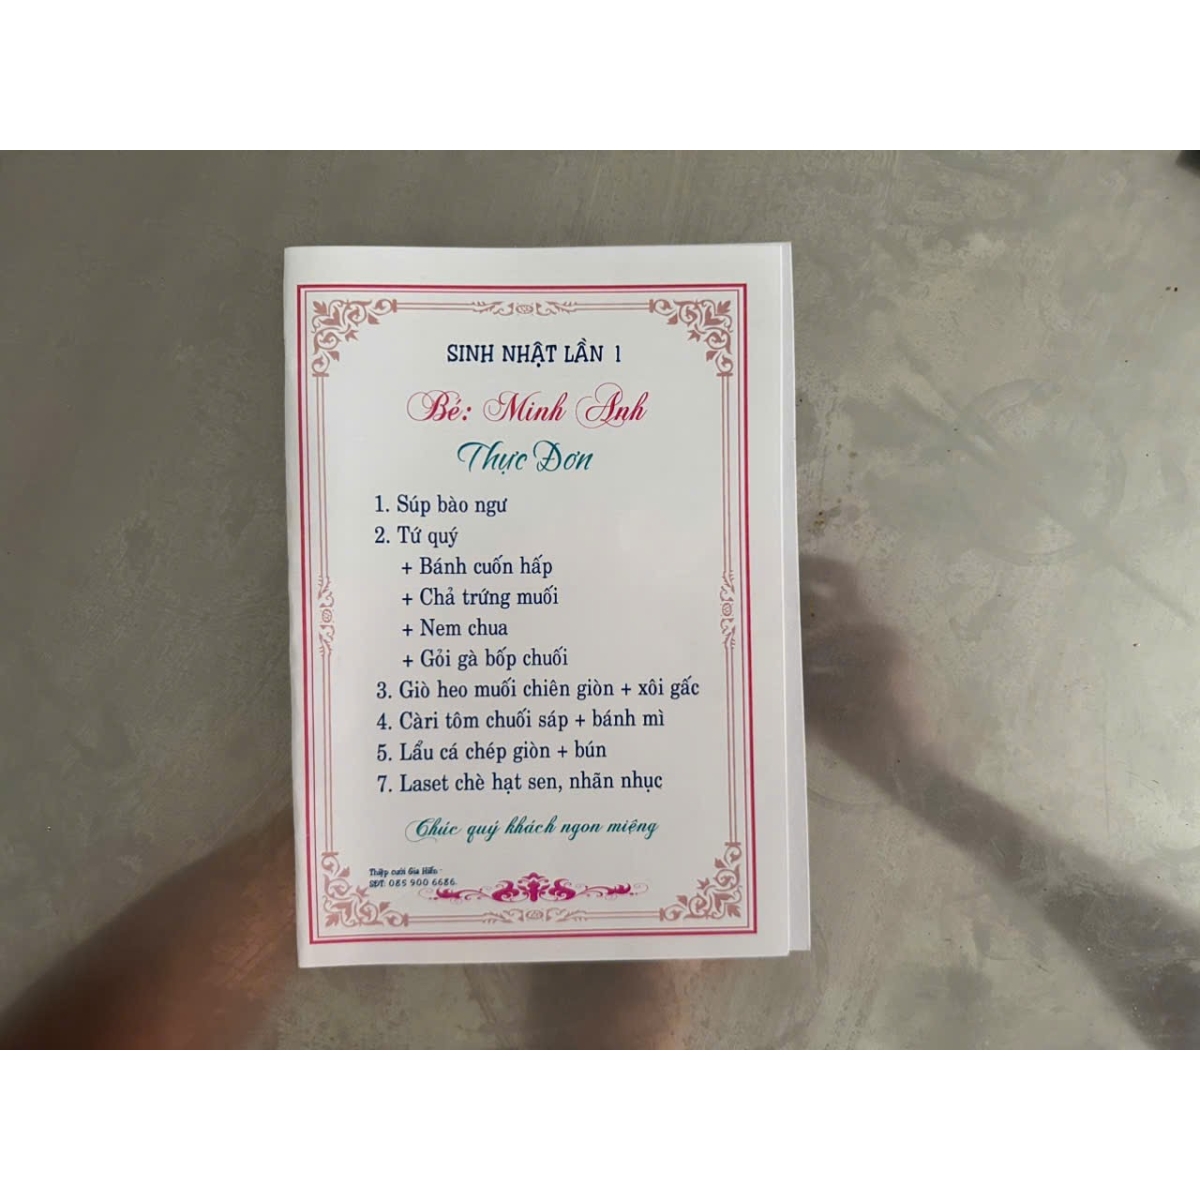 SINH NHẬT LẦN 1
Bé: Minh Anh
Thực Đơn
1. Súp bào ngư
2. Tứ quý
+ Bánh cuốn hấp
+ Chả trứng muối
+ Nem chua
+ Gỏi gà bốp chuối
3. Giò heo muối chiên giòn + xôi gấc
4. Càri tôm chuối sáp + bánh mì
5. Lẩu cá chép giòn + bún
7. Laset chè hạt sen, nhãn nhục
Chúc quý khách ngon miệng
Thiệp cưới Gia Hiển -
SĐT: 085 900 6686